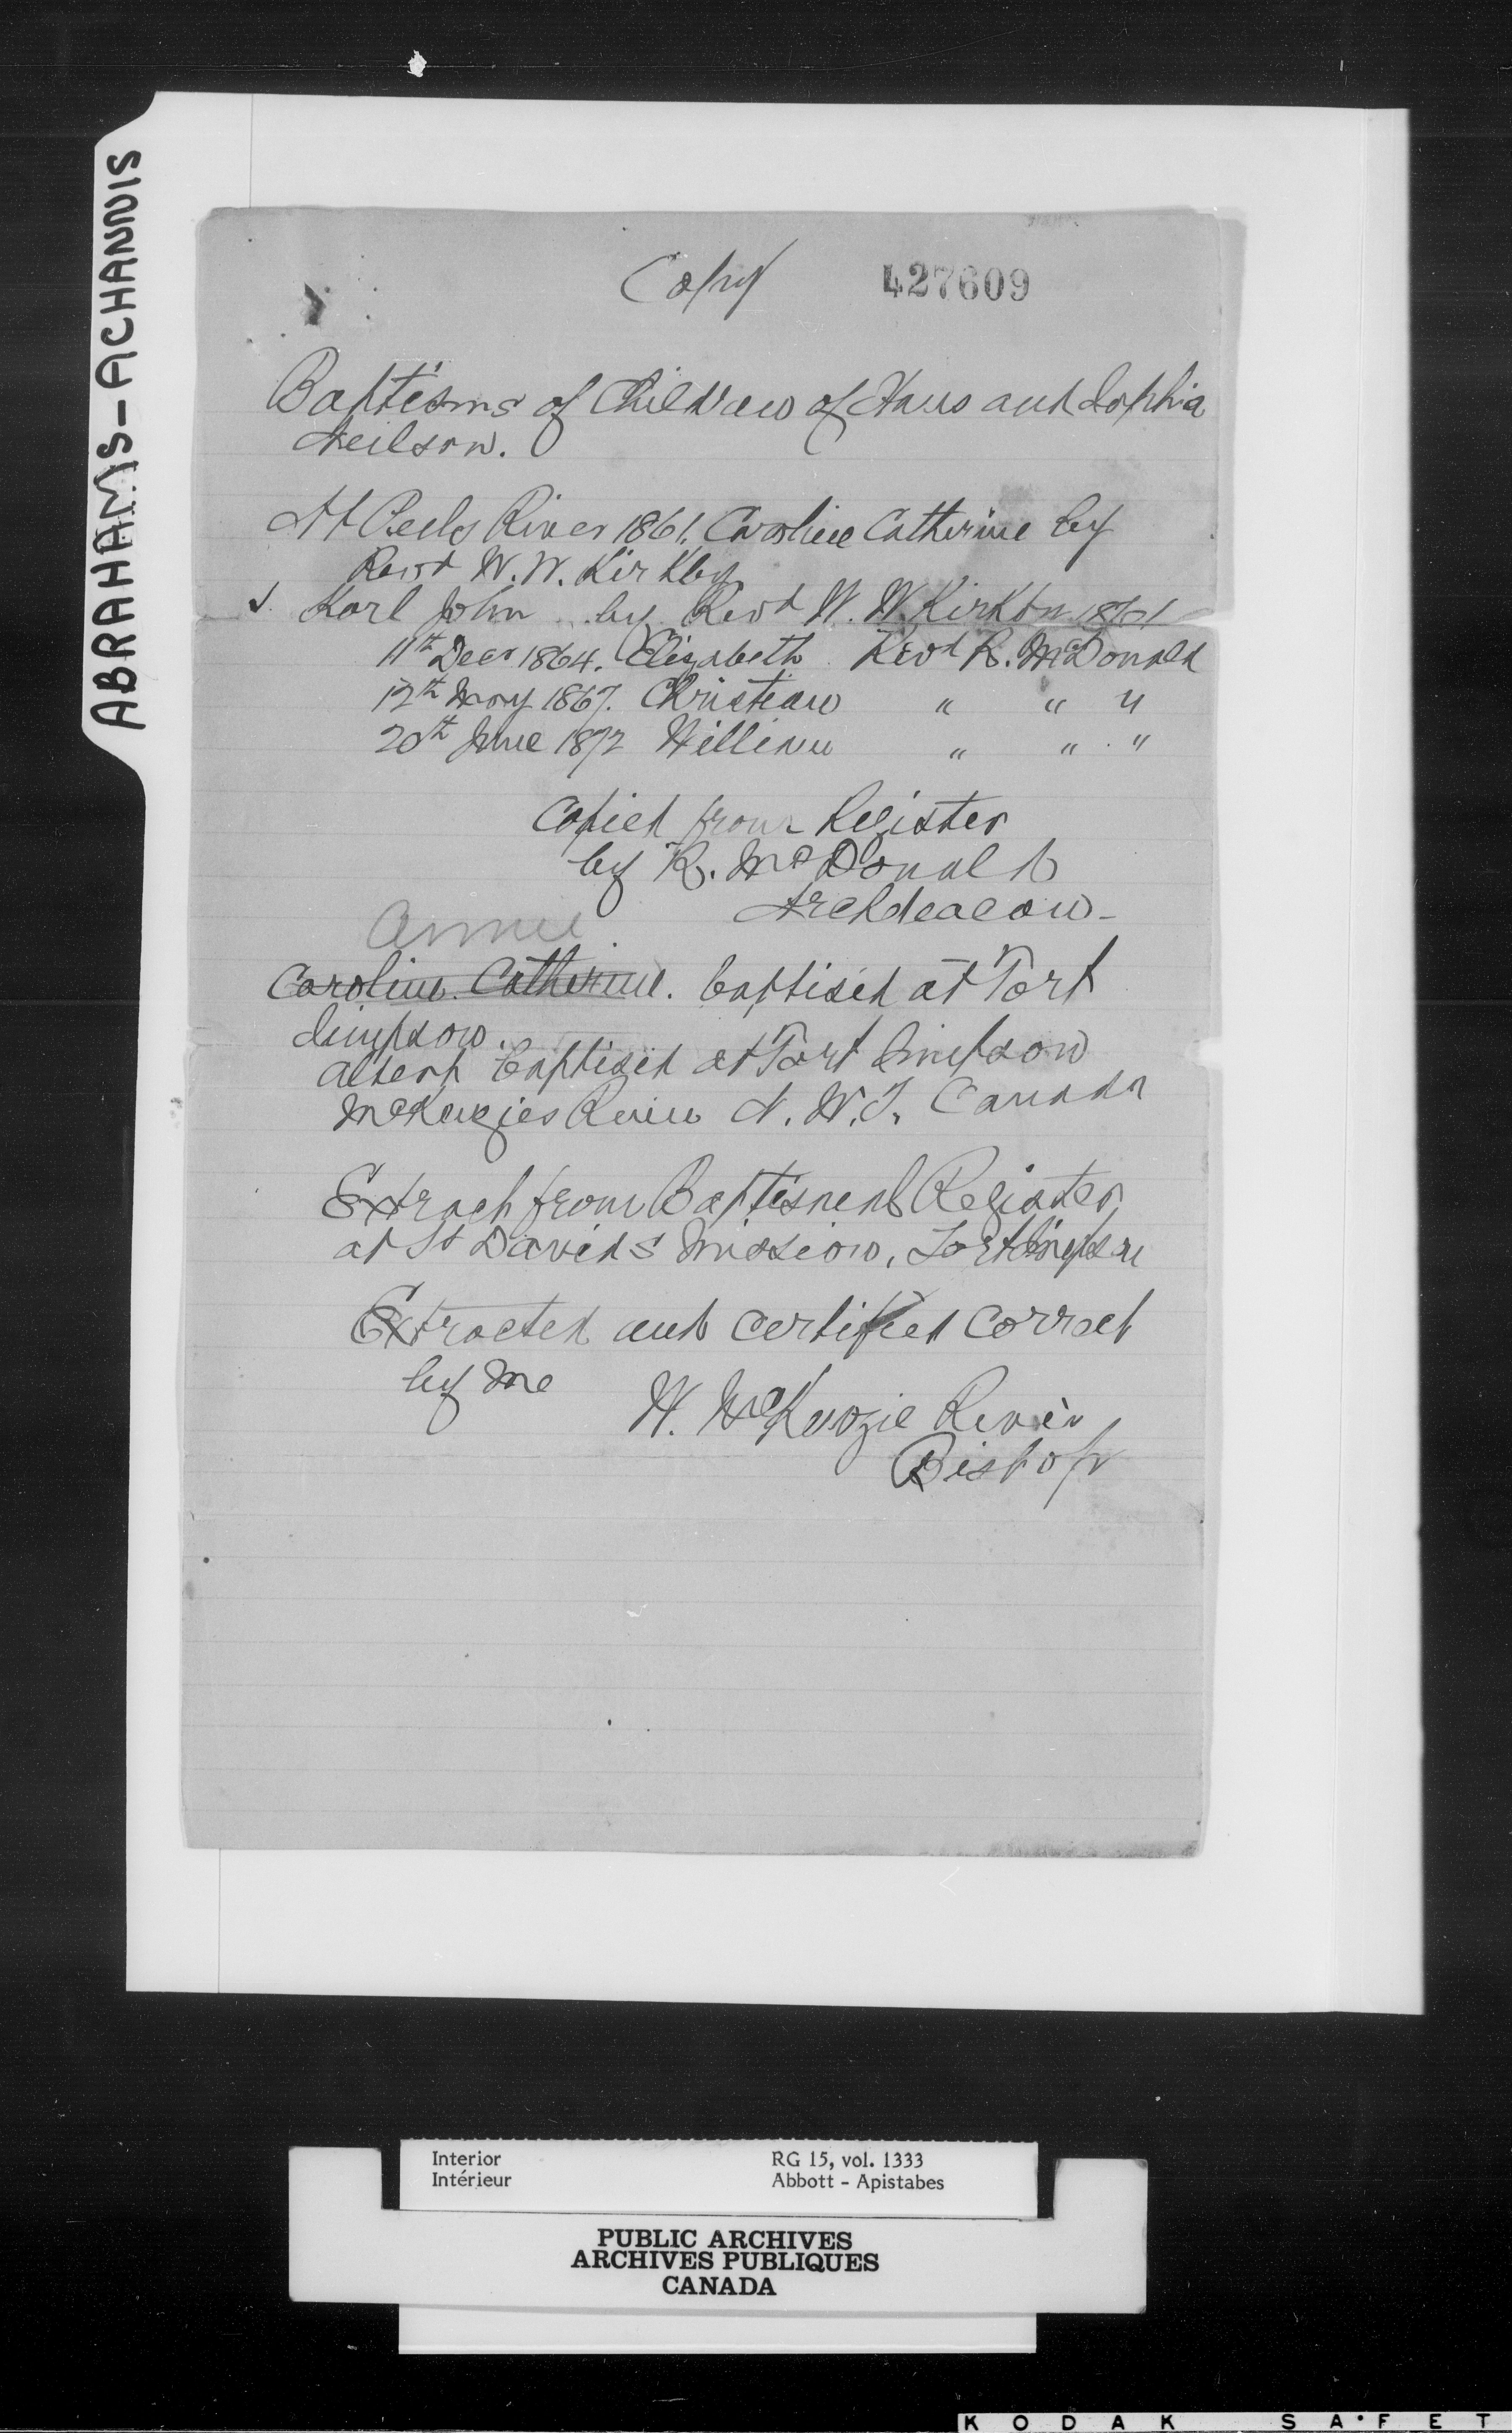 ABRAHAMS-ACHANNIS
Copy 427609
Baptisms of Children of Hans and Sophia
Neilson.
At Peels River 1861. Caroline Catherine by
Revd W. W. Kirkby
Karl John by Revd W. W. Kirkby 1861
11th Decr 1864. Elizabeth Revd R. McDonald
12th May 1867. Christian " " "
20th June 1872 William " " "
Copied from Register
by R. McDonald
Archdeacon
Annie
Caroline Catherine. baptised at Fort
Simpson.
Albert baptised at Fort Simpson
McKenzies River N. W. T. Canada
Extract from Baptismal Register
at St Davids Mission, Fort Simpson
Extracted and certified correct
by me
W. McKenzie River
Bishop
Interior RG 15, vol. 1333
Intérieur Abbott - Apistabes
PUBLIC ARCHIVES
ARCHIVES PUBLIQUES
CANADA
KODAK SAFET